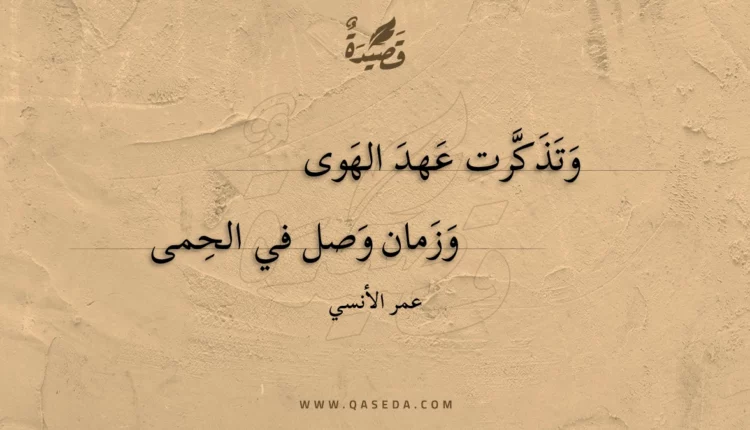 قَصِيدَةٌ
وَتَذَكَّرت عَهدَ الهَوى
وَزَمان وَصل في الحِمى
عمر الأنسي
WWW.QASEDA.COM